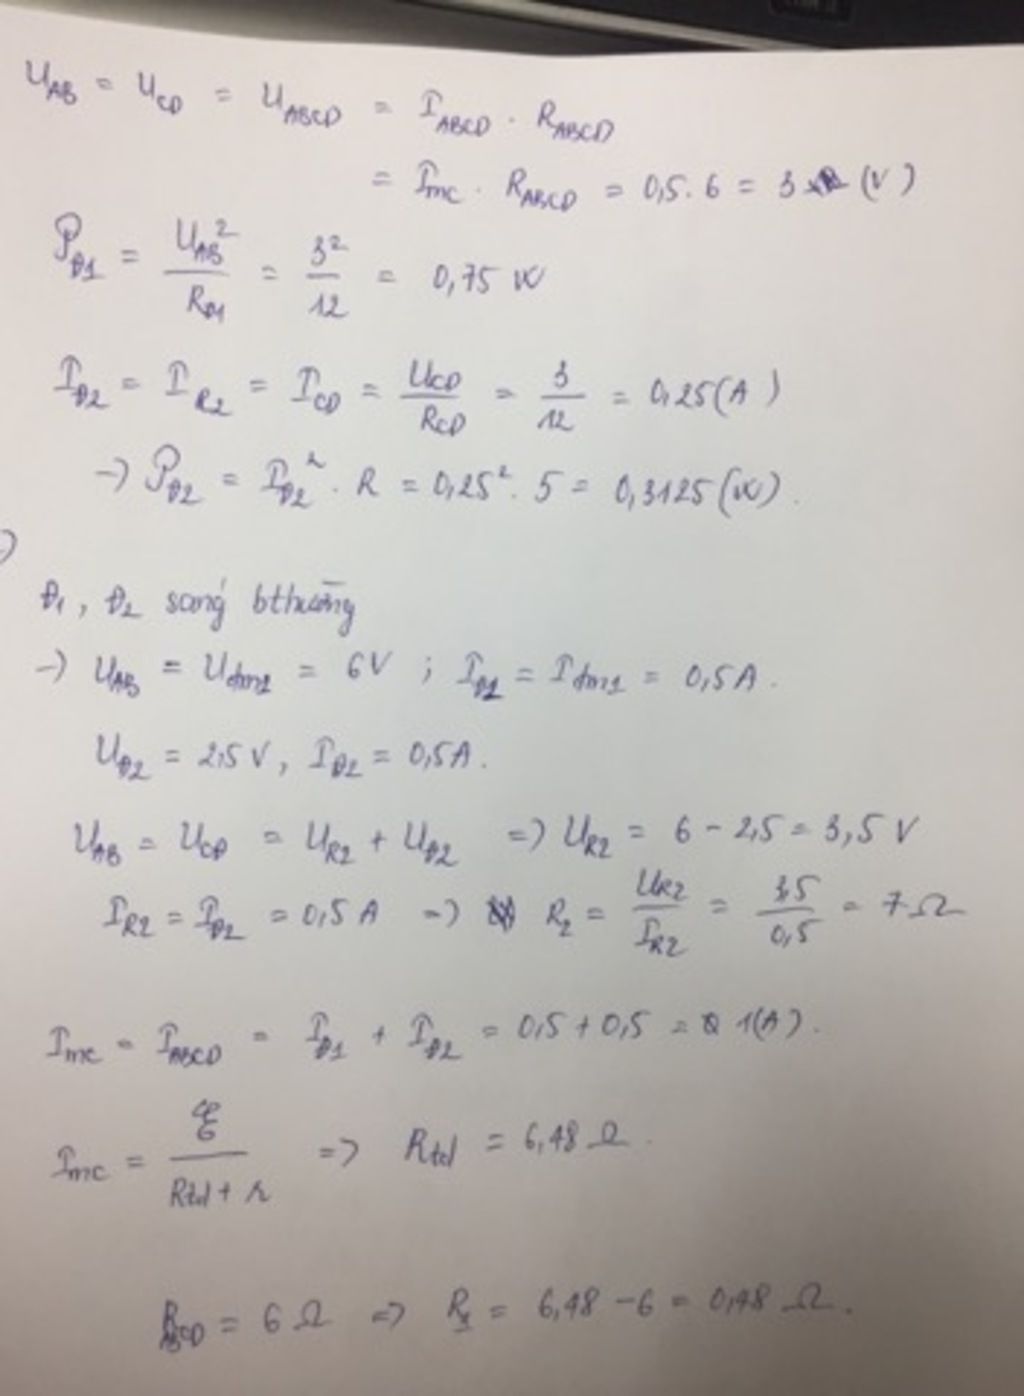 U_AB = U_CD = U_ABCD = I_ABCD . R_ABCD
= I_mc . R_ABCD = 0,5 . 6 = 3 (V)
P_Đ1 = U_AB² / R_Đ1 = 3² / 12 = 0,75 W
I_Đ2 = I_R2 = I_CD = U_CD / R_CD = 3 / 12 = 0,25 (A)
→ P_Đ2 = I_Đ2² . R = 0,25² . 5 = 0,3125 (W).
Đ1, Đ2 sáng bthường
→ U_AB = U_đm1 = 6V ; I_Đ1 = I_đm1 = 0,5A.
U_Đ2 = 2,5V, I_Đ2 = 0,5A.
U_AB = U_CD = U_R2 + U_Đ2 => U_R2 = 6 - 2,5 = 3,5 V
I_R2 = I_Đ2 = 0,5 A → R_2 = U_R2 / I_R2 = 3,5 / 0,5 = 7 Ω
I_mc = I_ABCD = I_Đ1 + I_Đ2 = 0,5 + 0,5 = 1(A).
I_mc = ξ / (Rtđ + r) => Rtđ = 6,48 Ω.
R_ABCD = 6 Ω => R_1 = 6,48 - 6 = 0,48 Ω.